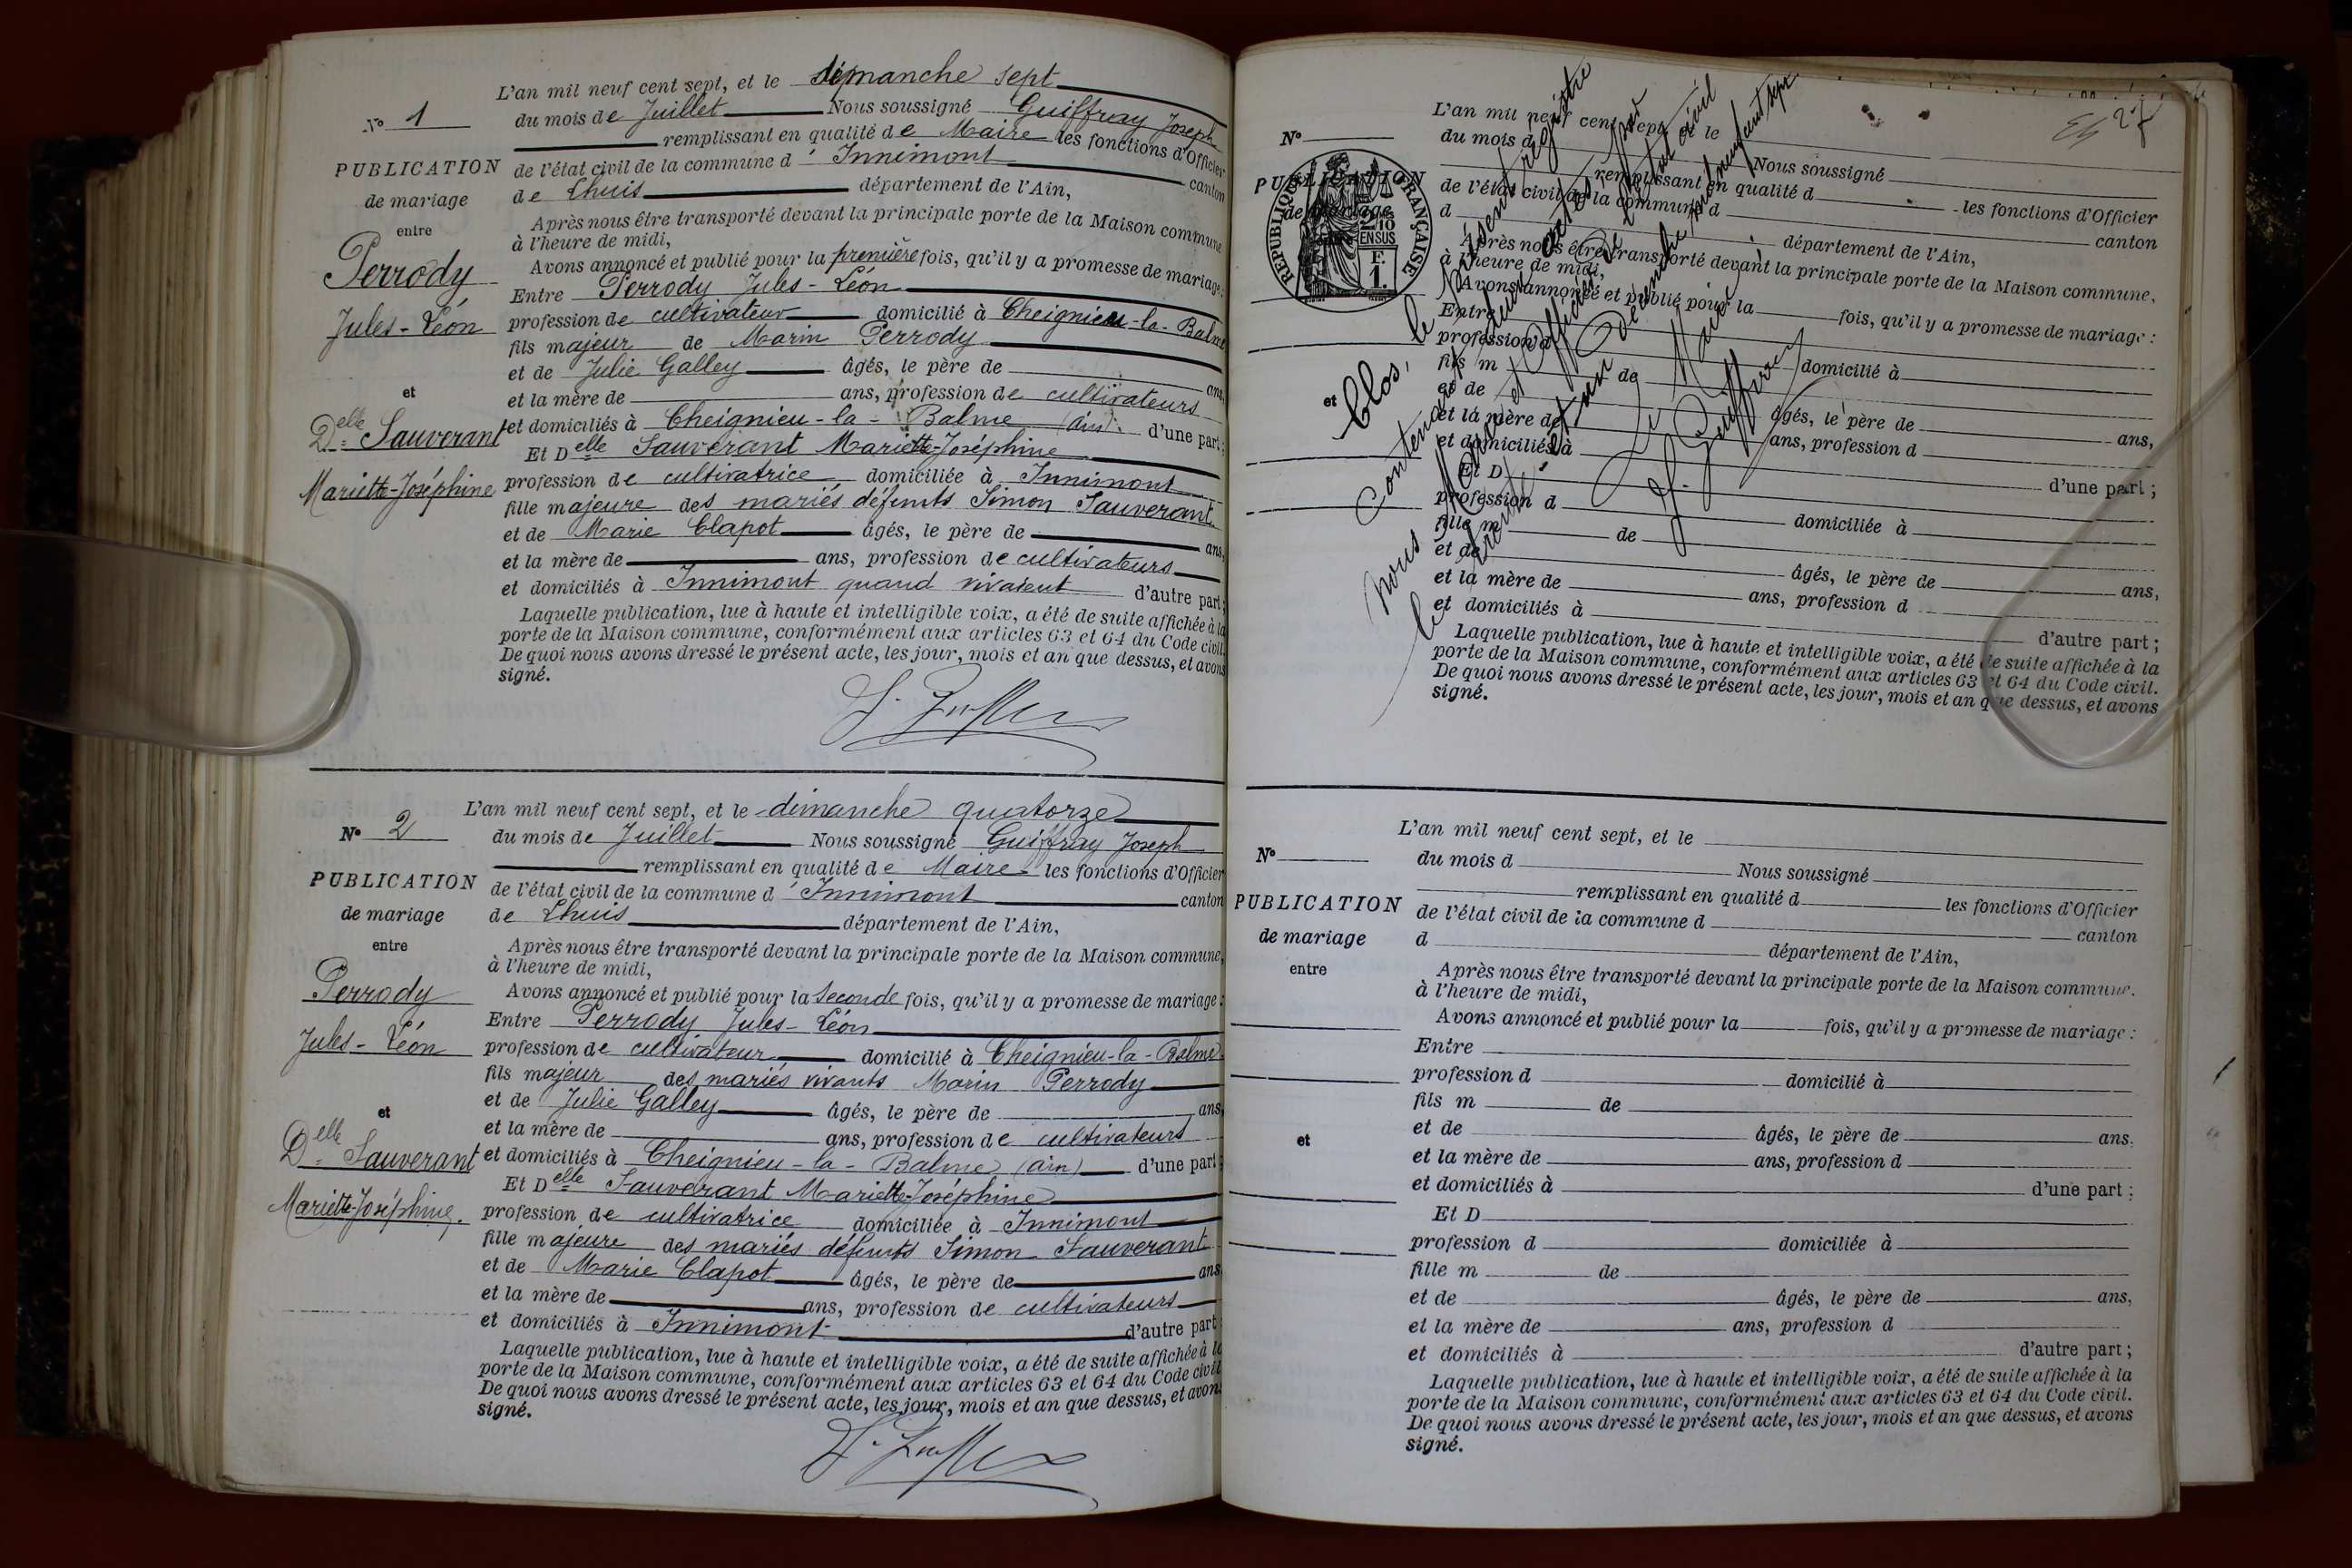 L'an mil neuf cent sept, et le dimanche sept
N° 1
du mois de Juillet Nous soussigné Guiffray Joseph
remplissant en qualité de Maire les fonctions d'Officier
PUBLICATION
de l'état civil de la commune d'Innimont canton
de mariage
de Lhuis département de l'Ain,
entre
Après nous être transporté devant la principale porte de la Maison commune
à l'heure de midi,
Perrody
Avons annoncé et publié pour la première fois, qu'il y a promesse de mariage:
Entre Perrody Jules-Léon
Jules-Léon
profession de cultivateur domicilié à Cheignieu-la-Balme
fils majeur de Marin Perrody
et de Julie Galley âgés, le père de ans,
et
et la mère de ans, profession de cultivateurs
Delle Sauverant
et domiciliés à Cheignieu-la-Balme (ain) d'une part;
Et Delle Sauverant Mariette-Joséphine
Mariette-Joséphine
profession de cultivatrice domiciliée à Innimont
fille majeure des mariés défunts Simon Sauverant
et de Marie Clapot âgés, le père de ans,
et la mère de ans, profession de cultivateurs
et domiciliés à Innimont quand vivaient d'autre part;
Laquelle publication, lue à haute et intelligible voix, a été de suite affichée à la
porte de la Maison commune, conformément aux articles 63 et 64 du Code civil.
De quoi nous avons dressé le présent acte, les jour, mois et an que dessus, et avons
signé.
L'an mil neuf cent sept, et le dimanche quatorze
N° 2
du mois de Juillet Nous soussigné Guiffray Joseph
remplissant en qualité de Maire les fonctions d'Officier
PUBLICATION
de l'état civil de la commune d'Innimont canton
de mariage
de Lhuis département de l'Ain,
entre
Après nous être transporté devant la principale porte de la Maison commune,
à l'heure de midi,
Perrody
Avons annoncé et publié pour la seconde fois, qu'il y a promesse de mariage:
Entre Perrody Jules-Léon
Jules-Léon
profession de cultivateur domicilié à Cheignieu-la-Balme
fils majeur des mariés vivants Marin Perrody
et de Julie Galley âgés, le père de ans,
et
et la mère de ans, profession de cultivateurs
Delle Sauverant
et domiciliés à Cheignieu-la-Balme (ain) d'une part;
Et Delle Sauverant Mariette-Joséphine
Mariette-Joséphine.
profession de cultivatrice domiciliée à Innimont
fille majeure des mariés défunts Simon Sauverant
et de Marie Clapot âgés, le père de ans,
et la mère de ans, profession de cultivateurs
et domiciliés à Innimont d'autre part;
Laquelle publication, lue à haute et intelligible voix, a été de suite affichée à la
porte de la Maison commune, conformément aux articles 63 et 64 du Code civil
De quoi nous avons dressé le présent acte, les jour, mois et an que dessus, et avons
signé.
27
L'an mil neuf cent sept, et le
N°
du mois d Nous soussigné
remplissant en qualité d les fonctions d'Officier
PUBLICATION
de l'état civil de la commune d canton
de mariage
d département de l'Ain,
RÉPUBLIQUE FRANÇAISE
2/10
EN SUS
F.
1.
Après nous être transporté devant la principale porte de la Maison commune,
à l'heure de midi,
Avons annoncé et publié pour la fois, qu'il y a promesse de mariage:
Entre
profession d domicilié à
fils m de
et de âgés, le père de ans,
et
et la mère de ans, profession d
et domiciliés à d'une part;
Et D
profession d domiciliée à
fille m de
et de âgés, le père de ans,
et la mère de ans, profession d
et domiciliés à d'autre part;
Laquelle publication, lue à haute et intelligible voix, a été de suite affichée à la
porte de la Maison commune, conformément aux articles 63 et 64 du Code civil.
De quoi nous avons dressé le présent acte, les jour, mois et an que dessus, et avons
signé.
Clos, le présent registre
contenant deux actes, par
nous Maire et Officier de l'état civil
le trente et un décembre mil neuf cent sept
Le Maire
J. Guiffray
L'an mil neuf cent sept, et le
N°
du mois d Nous soussigné
remplissant en qualité d les fonctions d'Officier
PUBLICATION
de l'état civil de la commune d canton
de mariage
d département de l'Ain,
entre
Après nous être transporté devant la principale porte de la Maison commune.
à l'heure de midi,
Avons annoncé et publié pour la fois, qu'il y a promesse de mariage:
Entre
profession d domicilié à
fils m de
et de âgés, le père de ans.
et
et la mère de ans, profession d
et domiciliés à d'une part;
Et D
profession d domiciliée à
fille m de
et de âgés, le père de ans,
et la mère de ans, profession d
et domiciliés à d'autre part;
Laquelle publication, lue à haute et intelligible voix, a été de suite affichée à la
porte de la Maison commune, conformément aux articles 63 et 64 du Code civil.
De quoi nous avons dressé le présent acte, les jour, mois et an que dessus, et avons
signé.